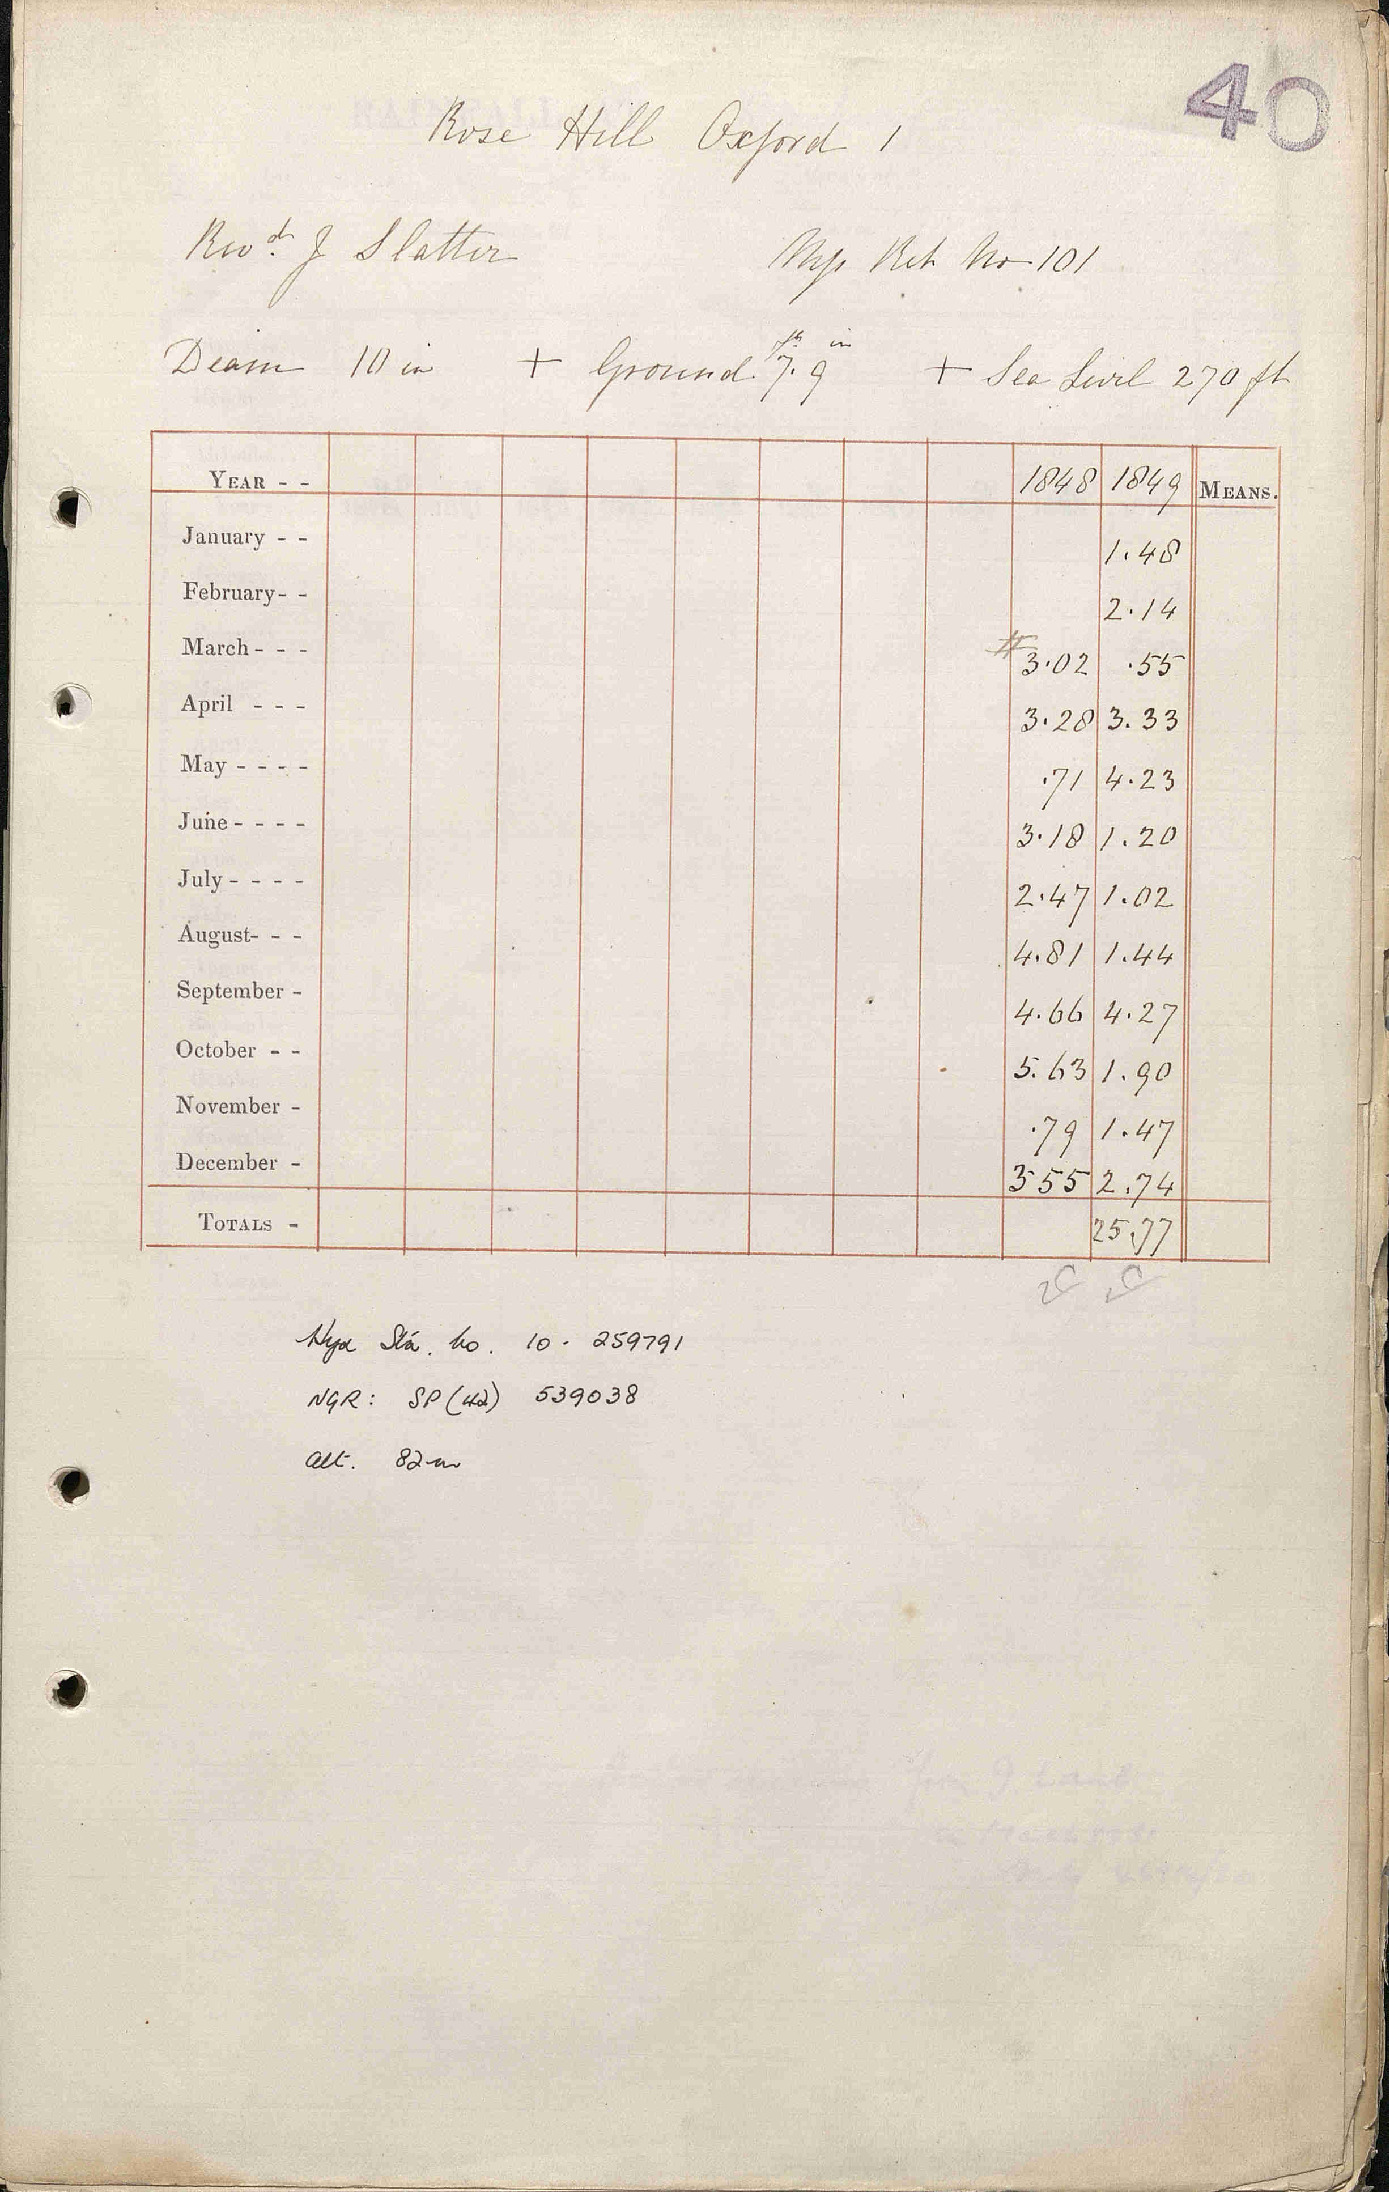 40
Rose Hill Oxford 1
Revd. J Slatter
Mss Ret No 101
Deam 10 in + Ground 7 ft. 9 in + Sea Level 270 ft
YEAR - - 1848 1849 MEANS.
January - - 1.48
February- - 2.14
March- - - # 3.02 .55
April - - - 3.28 3.33
May - - - - .71 4.23
June- - - - 3.18 1.20
July- - - - 2.47 1.02
August- - - 4.81 1.44
September - 4.66 4.27
October - - 5.63 1.90
November - .79 1.47
December - 3 55 2.74
TOTALS - 25.77
Sta. no. 10. 259791
NGR: SP (42) 539038
Alt. 82 m